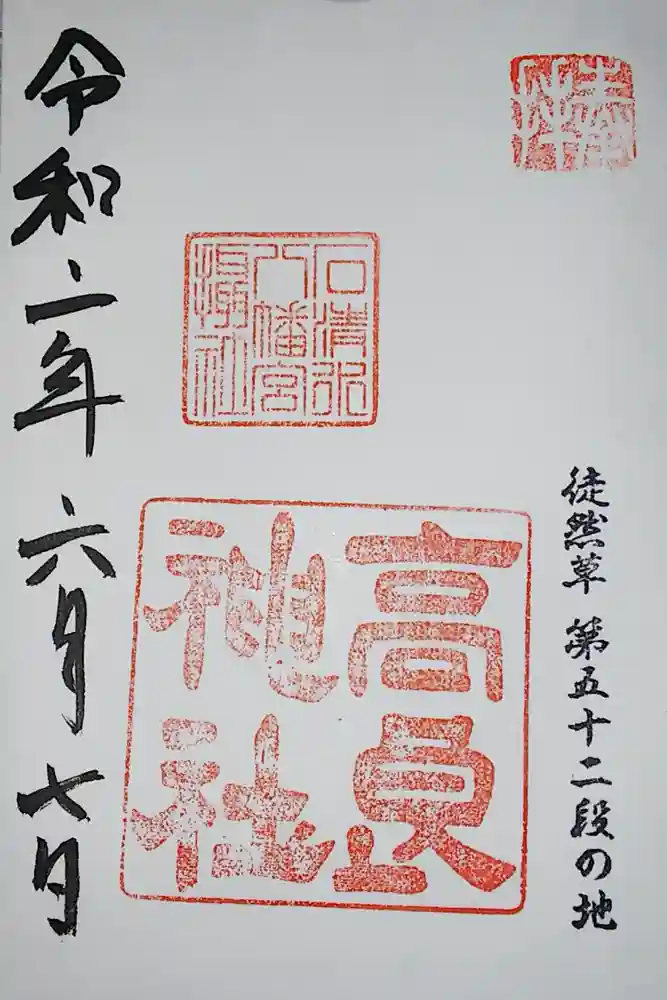 奉拝
徒然草 第五十二段の地
石清水
八幡宮
摂社
高良
神社
令和二年六月七日